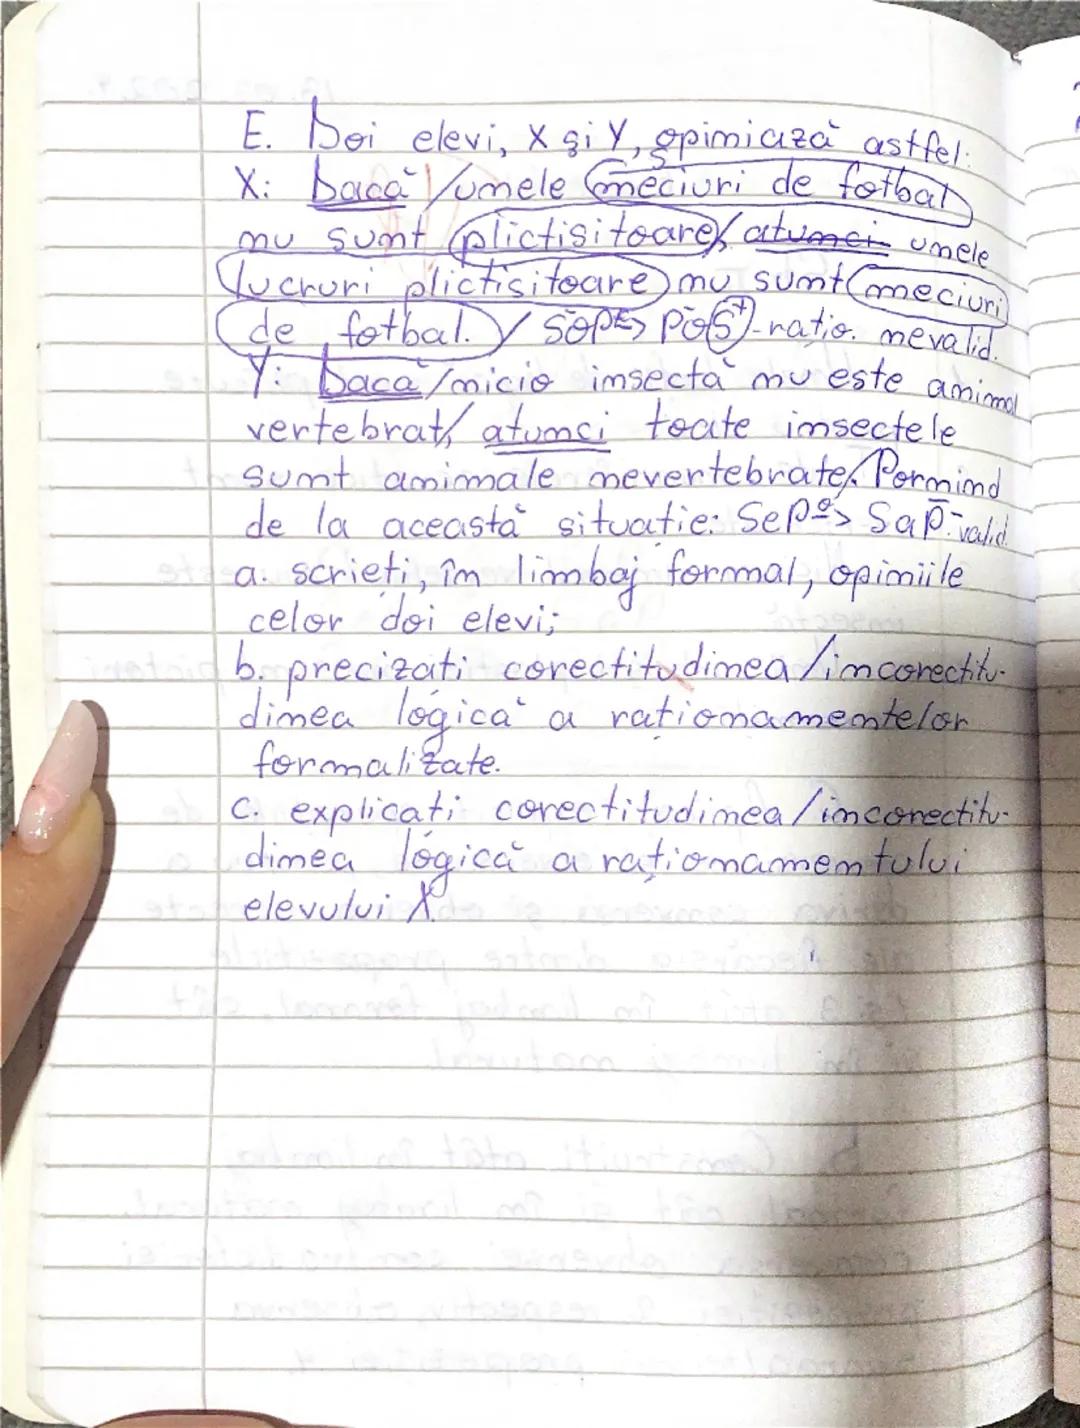 E. Doi elevi, X și Y, opiniază astfel:
X: Dacă /unele meciuri de fotbal
nu sunt plictisitoare/ atunci unele
lucruri plictisitoare nu sunt meciuri
de fotbal. / SOP PoS⁺-rațio. nevalid.
Y: Dacă/nicio insectă nu este animal
vertebrat/ atunci toate insectele
sunt animale nevertebrate/. Pornind
de la această situație: SeP ᵒ> SaP̄-valid.
a. scrieți, în limbaj formal, opiniile
celor doi elevi;
b. precizați corectitudinea/incorectitu-
dinea logică a raționamentelor
formalizate.
c. explicați corectitudinea/incorectitu-
dinea logică a raționamentului
elevului X.